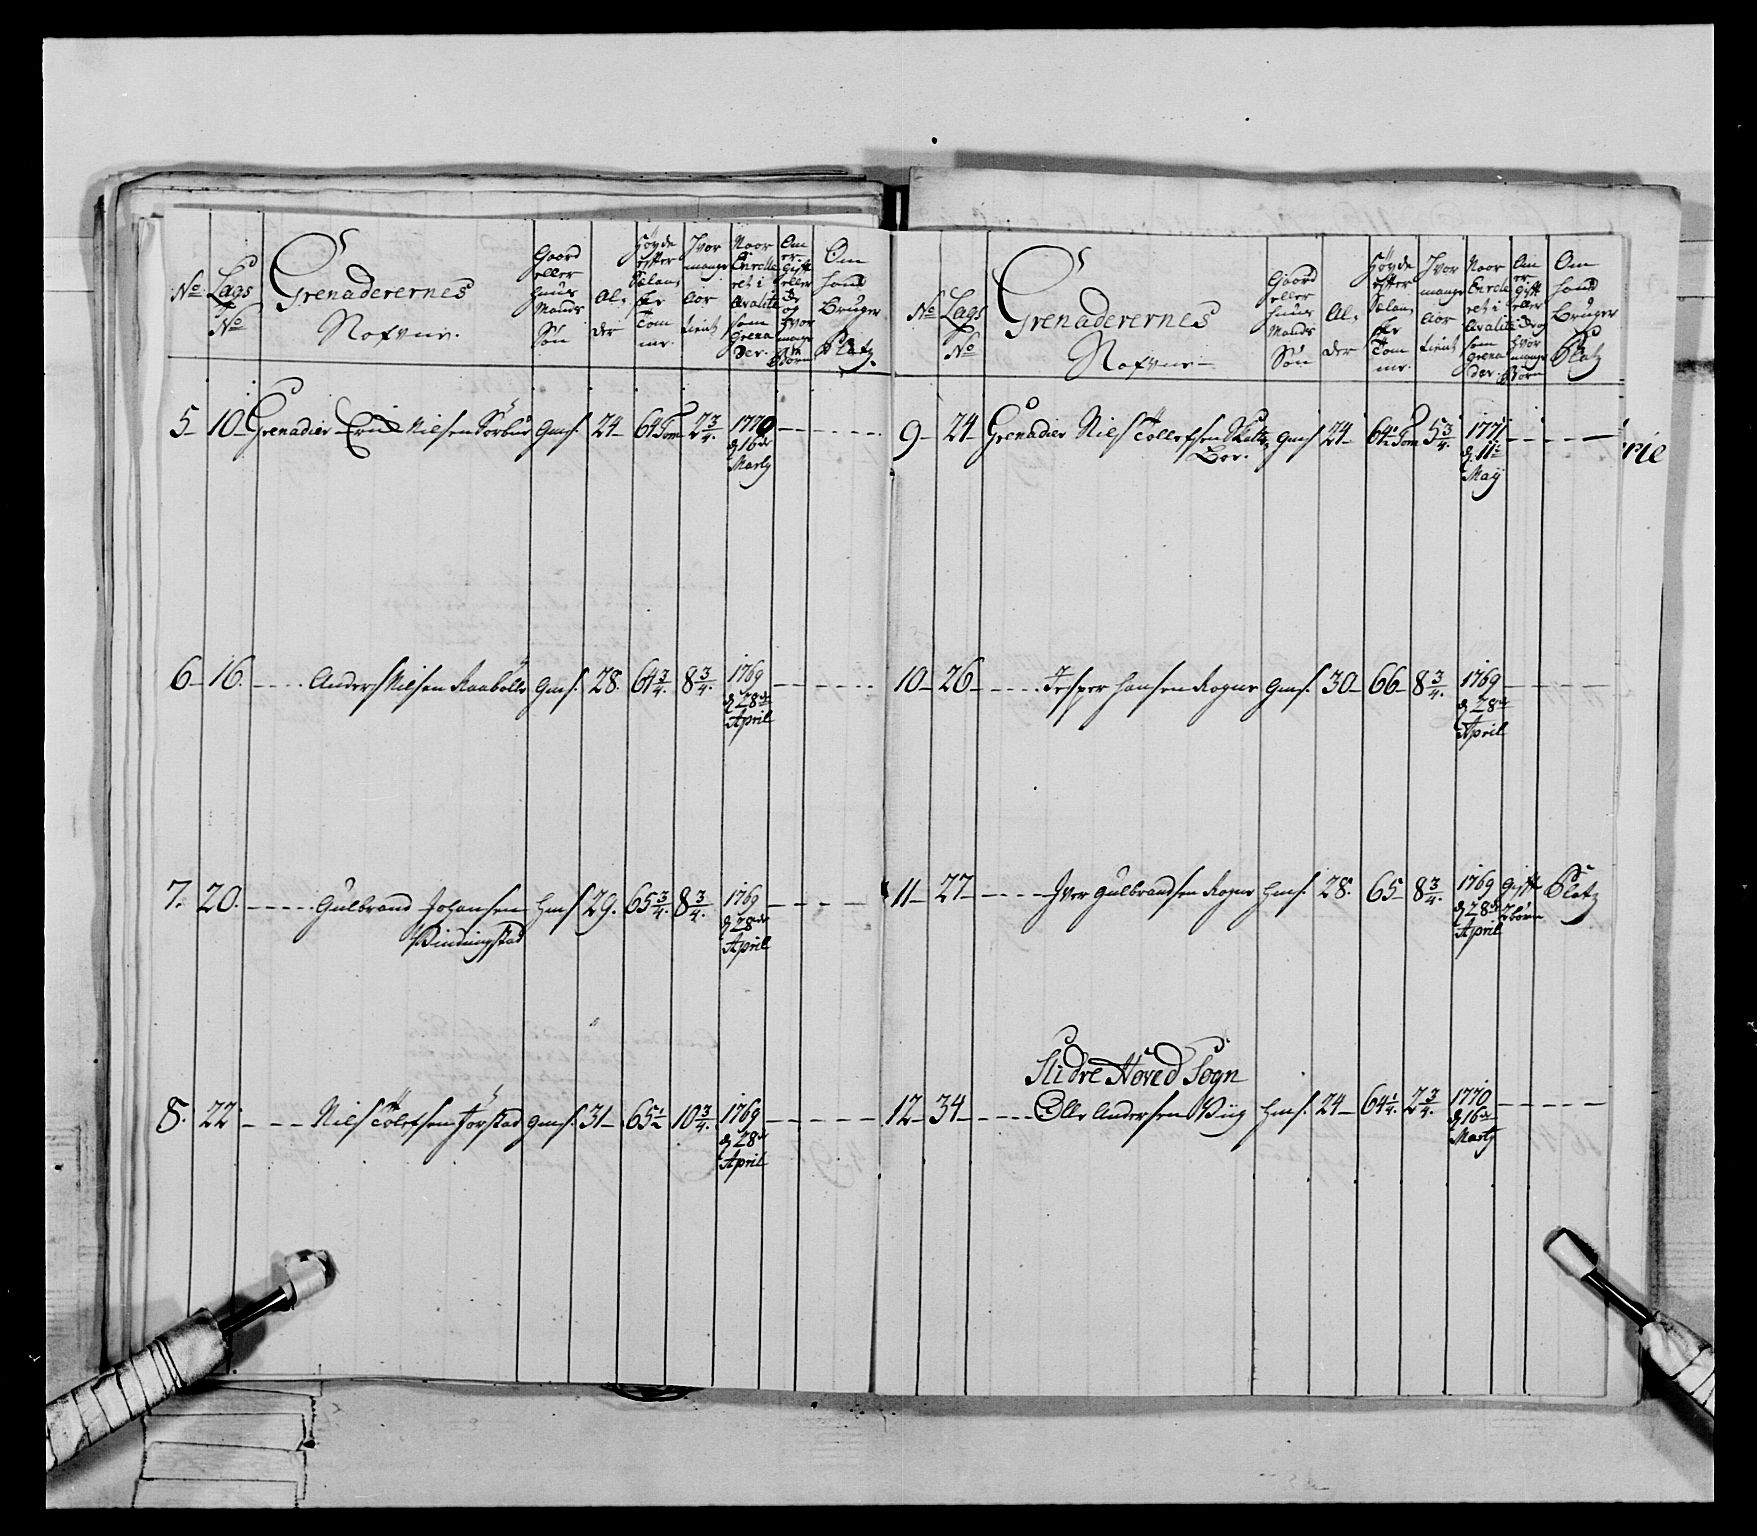 No Lags No Grenaderernes Nafvne. Gaard eller huus Mands Søn Al, der Høyde efter Sælan, ske Tom me. Hvor mange Aar tient Naar Enrolle ret i Qvalite som Grena der. Om er Gift eller ey og hvor mange Børn Om hand Bruger Platz.
5 10 Grenadier Eric Nilsen Sørbøe Gms. 24 64 Tom 2 3/4. 1770 d 16de Marty
6 16. Anders Nilsen Raabølle Gms. 28. 64 3/4. 8 3/4. 1769 d 28de April
7. 20. Gulbrand Johansen Windingstad Hms. 29. 65 3/4. 8 3/4. 1769 d 28de April
8. 22 Nils Tolefsen Jørstad Gms. 31 65 1/2 10 3/4. 1769 d 28de April
No Lags No Grenaderernes Nafvne Gaard eller huus Mands Søn Al, der Høyde efter Sælan, ske Tom me. Hvor mange Aar tient Naar Enrolle ret i Qvalite som Grena der. Om er Gift eller ey og hvor mange Børn Om hand Bruger Platz
9 24 Grenadier Nils Tollefsen Skatte, Boe. Gms 24 64 1/2 Tom 5 3/4. 1771 d. 11te May
10 26 Jesper Hansen Rogne Gms. 30 66 8 3/4. 1769 d 28de April
11 27 Iver Gulbrandsen Rogne Hms. 28. 65 8 3/4. 1769 d 28de April Gift 2 børn Platz
Slidre Hoved Sogn
12 34 Olle Andersen Wiig Hms. 24 64 1/4. 2 3/4. 1770 d 16de Marty
rie